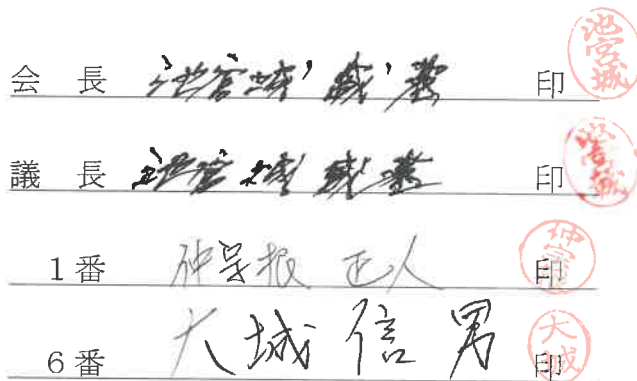 会 長 池宮城 印 池宮城
議 長 池宮城 印 池宮城
1番 仲宗根 正人 印 仲宗根
6番 大城 信男 印 大城